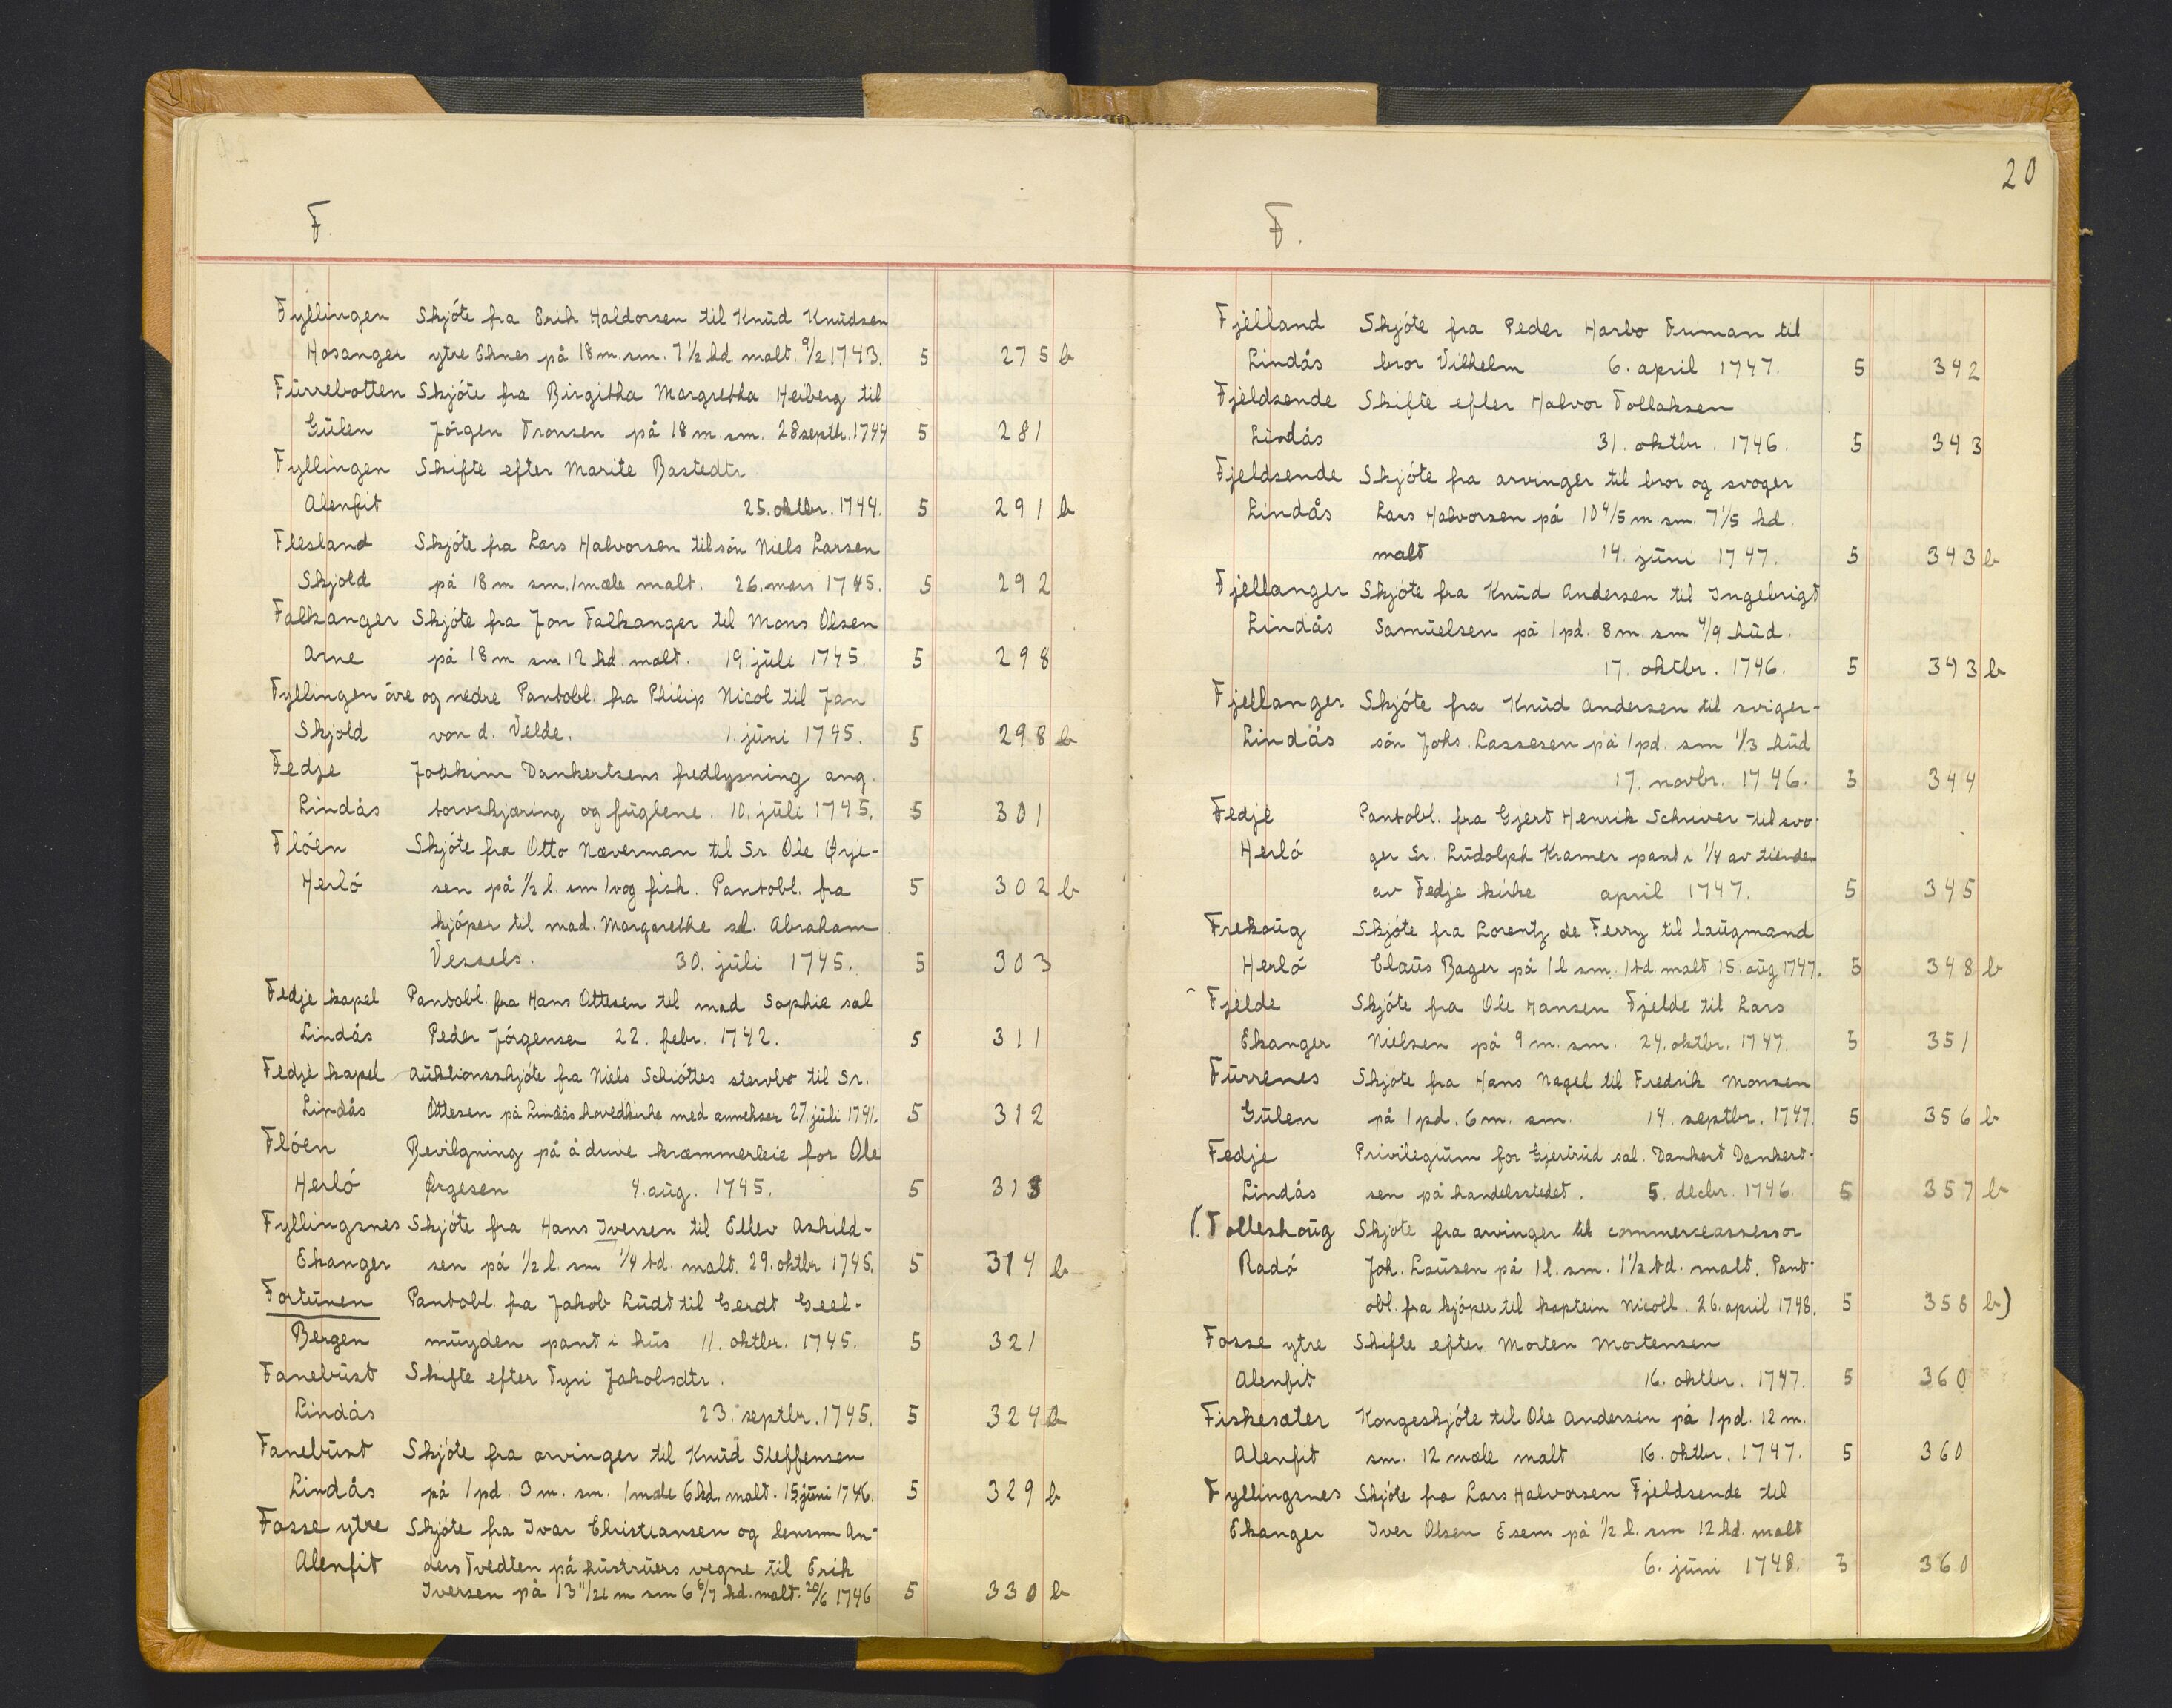 F.
Fyllingen Skjóte fra Erik Haldorsen til Knud Knudsen
Hosanger ytre Eknes på 18 m. sm. 7 1/2 kd malt. 9/2 1743. 5 275 b
Furrebotten Skjóte fra Birgitha Margretha Heiberg til
Gulen Jórgen Tronsen på 18 m. sm. 28 septbr. 1744 5 281
Fyllingen Skifte efter Marite Bastedtr
Alenfit 25. oktbr. 1744. 5 291 b
Flesland Skjóte fra Lars Halvorsen til són Niels Larsen
Skjold på 18 m sm. 1 mæle malt. 26. mars 1745. 5 292
Falkanger Skjóte fra Jon Falkanger til Mons Olsen
Arne på 18 m sm 12 kd. malt. 19. juli 1745. 5 298
Fyllingen óvre og nedre Pantobl. fra Philip Nicol til Jan
Skjold von d. Velde. 1. juni 1745. 5 298 b
Fedje Joakim Dankertsens fredlysning ang.
Lindås torvskjæring og fuglene. 10. juli 1745. 5 301
Flóen Skjóte fra Otto Næverman til Sr. Ole Ørje-
Herló sen på 1/2 l. sm 1 vog fisk. Pantobl. fra 5 302 b
kjóper til mad. Margarethe sl. Abraham
Vessels. 30. juli 1745. 5 303
Fedje kapel Pantobl. fra Hans Ottesen til mad Sophie sal
Lindås Peder Jórgensen 22. febr. 1742. 5 311
Fedje kapel Auktionsskjóte fra Niels Schióttes stervbo til Sr.
Lindås Ottesen på Lindås hovedkirke med annekser 27. juli 1741. 5 312
Flóen Bevilgning på å drive kræmmerleie for Ole
Herló Ørgesen 4. aug. 1745. 5 313
Fyllingsnes Skjóte fra Hans Iversen til Ellev Askild-
Ekanger sen på 1/2 l. sm 1/4 td. malt. 29. oktbr 1745. 5 314 b
Fortunen Pantobl. fra Jakob Ludt til Gerdt Geel-
Bergen muyden pant i hus 11. oktbr. 1745. 5 321
Fanebust Skifte efter Tyri Jakobsdtr.
Lindås 23. septbr. 1745. 5 324 b
Fanebust Skjóte fra arvinger til Knud Steffensen
Lindås på 1 pd. 3 m. sm. 1 mæle 6 kd. malt. 15. juni 1746. 5 329 b
Fosse ytre Skjóte fra Ivar Christiansen og lensm An-
Alenfit ders Tvedten på hustruers vegne til Erik
Iversen på 13 11/21 m sm 6 6/7 kd. malt. 20/6 1746 5 330 b
20
F.
Fjelland Skjóte fra Peder Harbo Friman til
Lindås bror Vilhelm 6. april 1747. 5 342
Fjeldsende Skifte efter Halvor Tollaksen
Lindås 31. oktbr. 1746. 5 343
Fjeldsende Skjóte fra arvinger til bror og svoger
Lindås Lars Halvorsen på 10 4/5 m. sm. 7 1/5 kd.
malt 14. juni 1747. 5 343 b
Fjellanger Skjóte fra Knud Andersen til Ingebrigt
Lindås Samuelsen på 1 pd. 8 m. sm 4/9 hud.
17. oktbr. 1746. 5 343 b
Fjellanger Skjóte fra Knud Andersen til sviger-
Lindås són Johs. Lassesen på 1 pd. sm 1/3 hud
17. novbr. 1746. 5 344
Fedje Pantobl. fra Gjert Henrik Schrver til svo-
Herló ger Sr. Ludolph Kramer pant i 1/4 av tienden
av Fedje kirke april 1747. 5 345
Frekaug Skjóte fra Lorentz de Ferry til laugmand
Herló Claus Bager på 1 l sm. 1 td malt 15. aug 1747. 5 348 b
Fjelde Skjóte fra Ole Hansen Fjelde til Lars
Ekanger Nielsen på 9 m. sm. 24. oktbr. 1747. 5 351
Furrenes Skjóte fra Hans Nagel til Fredrik Monsen
Gulen på 1 pd. 6 m. sm. 14. septbr. 1747. 5 356 b
Fedje Privilegium for Gjertrud sal. Dankert Dankert-
Lindås sen på handelsstedet. 5. decbr. 1746. 5 357 b
(Folleshaug Skjóte fra arvinger til commerceassessor
Radó Joh. Lausen på 1 l. sm. 1 1/2 td. malt. Pant-
obl. fra kjóper til kaptein Nicoll. 26. april 1748. 5 358 b)
Fosse ytre Skifte efter Morten Mortensen
Alenfit 16. oktbr. 1747. 5 360
Fiskesæter Kongeskjóte til Ole Andersen på 1 pd. 12 m.
Alenfit sm. 12 mæle malt 16. oktbr. 1747. 5 360
Fyllingsnes Skjóte fra Lars Halvorsen Fjeldsende til
Ekanger Iver Olsen Esem på 1/2 l. sm 12 kd. malt
6. juni 1748. 5 360